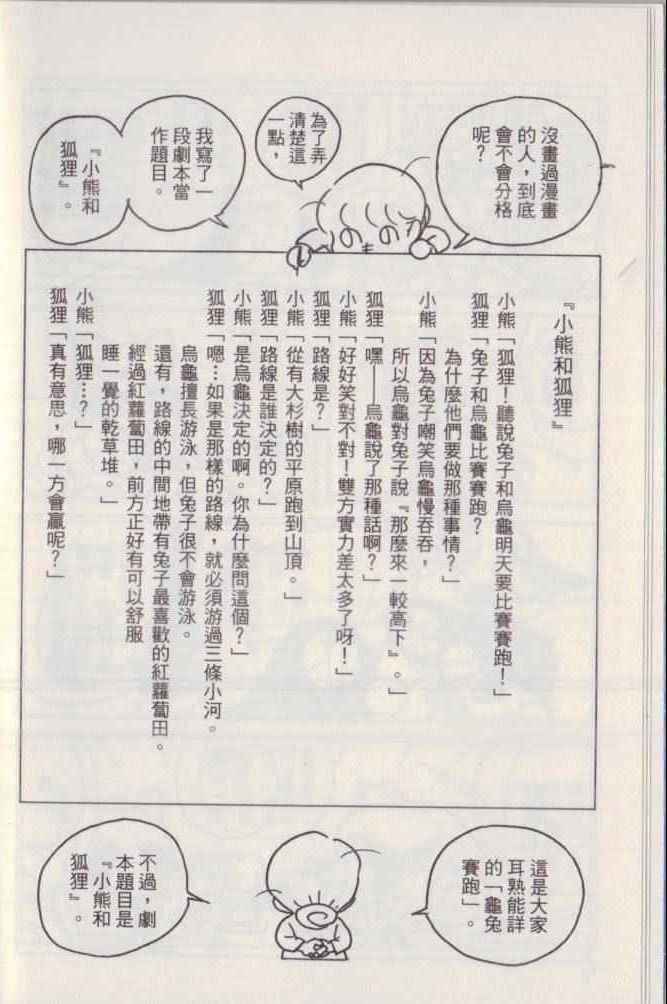 沒畫過漫畫
的人，到底
會不會分格
呢？
為了弄
清楚這
一點，
我寫了一
段劇本當
作題目。
『小熊和
狐狸』。
『小熊和狐狸』
小熊「狐狸！聽說兔子和烏龜明天要比賽賽跑！」
狐狸「兔子和烏龜比賽賽跑？
為什麼他們要做那種事情？」
小熊「因為兔子嘲笑烏龜慢吞吞，
所以烏龜對兔子說『那麼來一較高下』。」
狐狸「嘿——烏龜說了那種話啊？」
小熊「好好笑對不對！雙方實力差太多了呀！」
狐狸「路線是？」
小熊「從有大杉樹的平原跑到山頂。」
狐狸「路線是誰決定的？」
小熊「是烏龜決定的啊。你為什麼問這個？」
狐狸「嗯…如果是那樣的路線，就必須游過三條小河。
烏龜擅長游泳，但兔子很不會游泳。
還有，路線的中間地帶有兔子最喜歡的紅蘿蔔田。
經過紅蘿蔔田，前方正好有可以舒服
睡一覺的乾草堆。」
小熊「狐狸…？」
狐狸「真有意思，哪一方會贏呢？」
這是大家
耳熟能詳
的「龜兔
賽跑」。
不過，劇
本題目是
『小熊和
狐狸』。